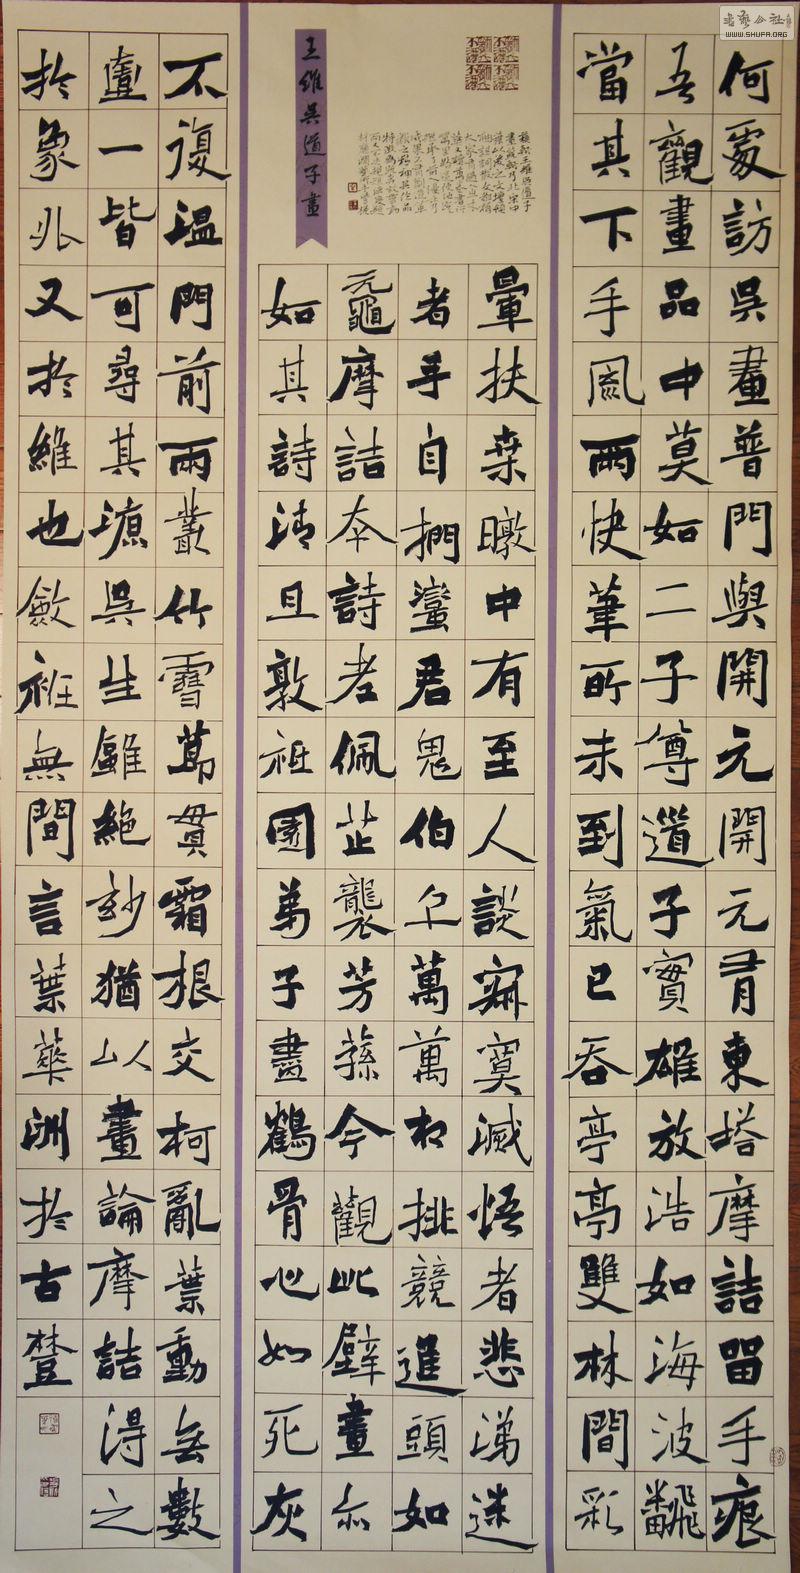 書藝公社
WWW.SHUFA.ORG
何處訪吳畫普門與開元開元有東塔摩詰留手痕
吾觀畫品中莫如二子尊道子實雄放浩如海波飜
當其下手風雨快筆所未到氣已吞亭亭雙林間彩
蘇軾王維吳道子
畫蘇軾乃北宋中
王維吳道子畫
暈扶桑暾中有至人談寂寞滅悟者悲涕迷
者手自捫蠻君鬼伯千萬萬相排競進頭如
黿摩詰本詩老佩芷襲芳蓀今觀此壁畫亦
如其詩清且敦祇園弟子盡鶴骨心如死灰
不復溫門前兩叢竹雪節貫霜根交柯亂葉動無數
壹一皆可尋其源吳生雖絕妙猶以畫論摩詰得之
於象外又於維也斂衽無間言葉華洲於古